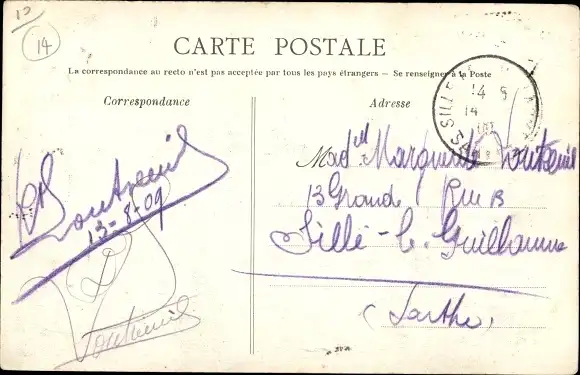 13
14
CARTE POSTALE
La correspondance au recto n'est pas acceptée par tous les pays étrangers — Se renseigner à la Poste
Correspondance
Adresse
SILLÉ
14
Madell Marguerite
13 Grande Rue 13
Sillé-le-Guillaume
(Sarthe)
13-8-09